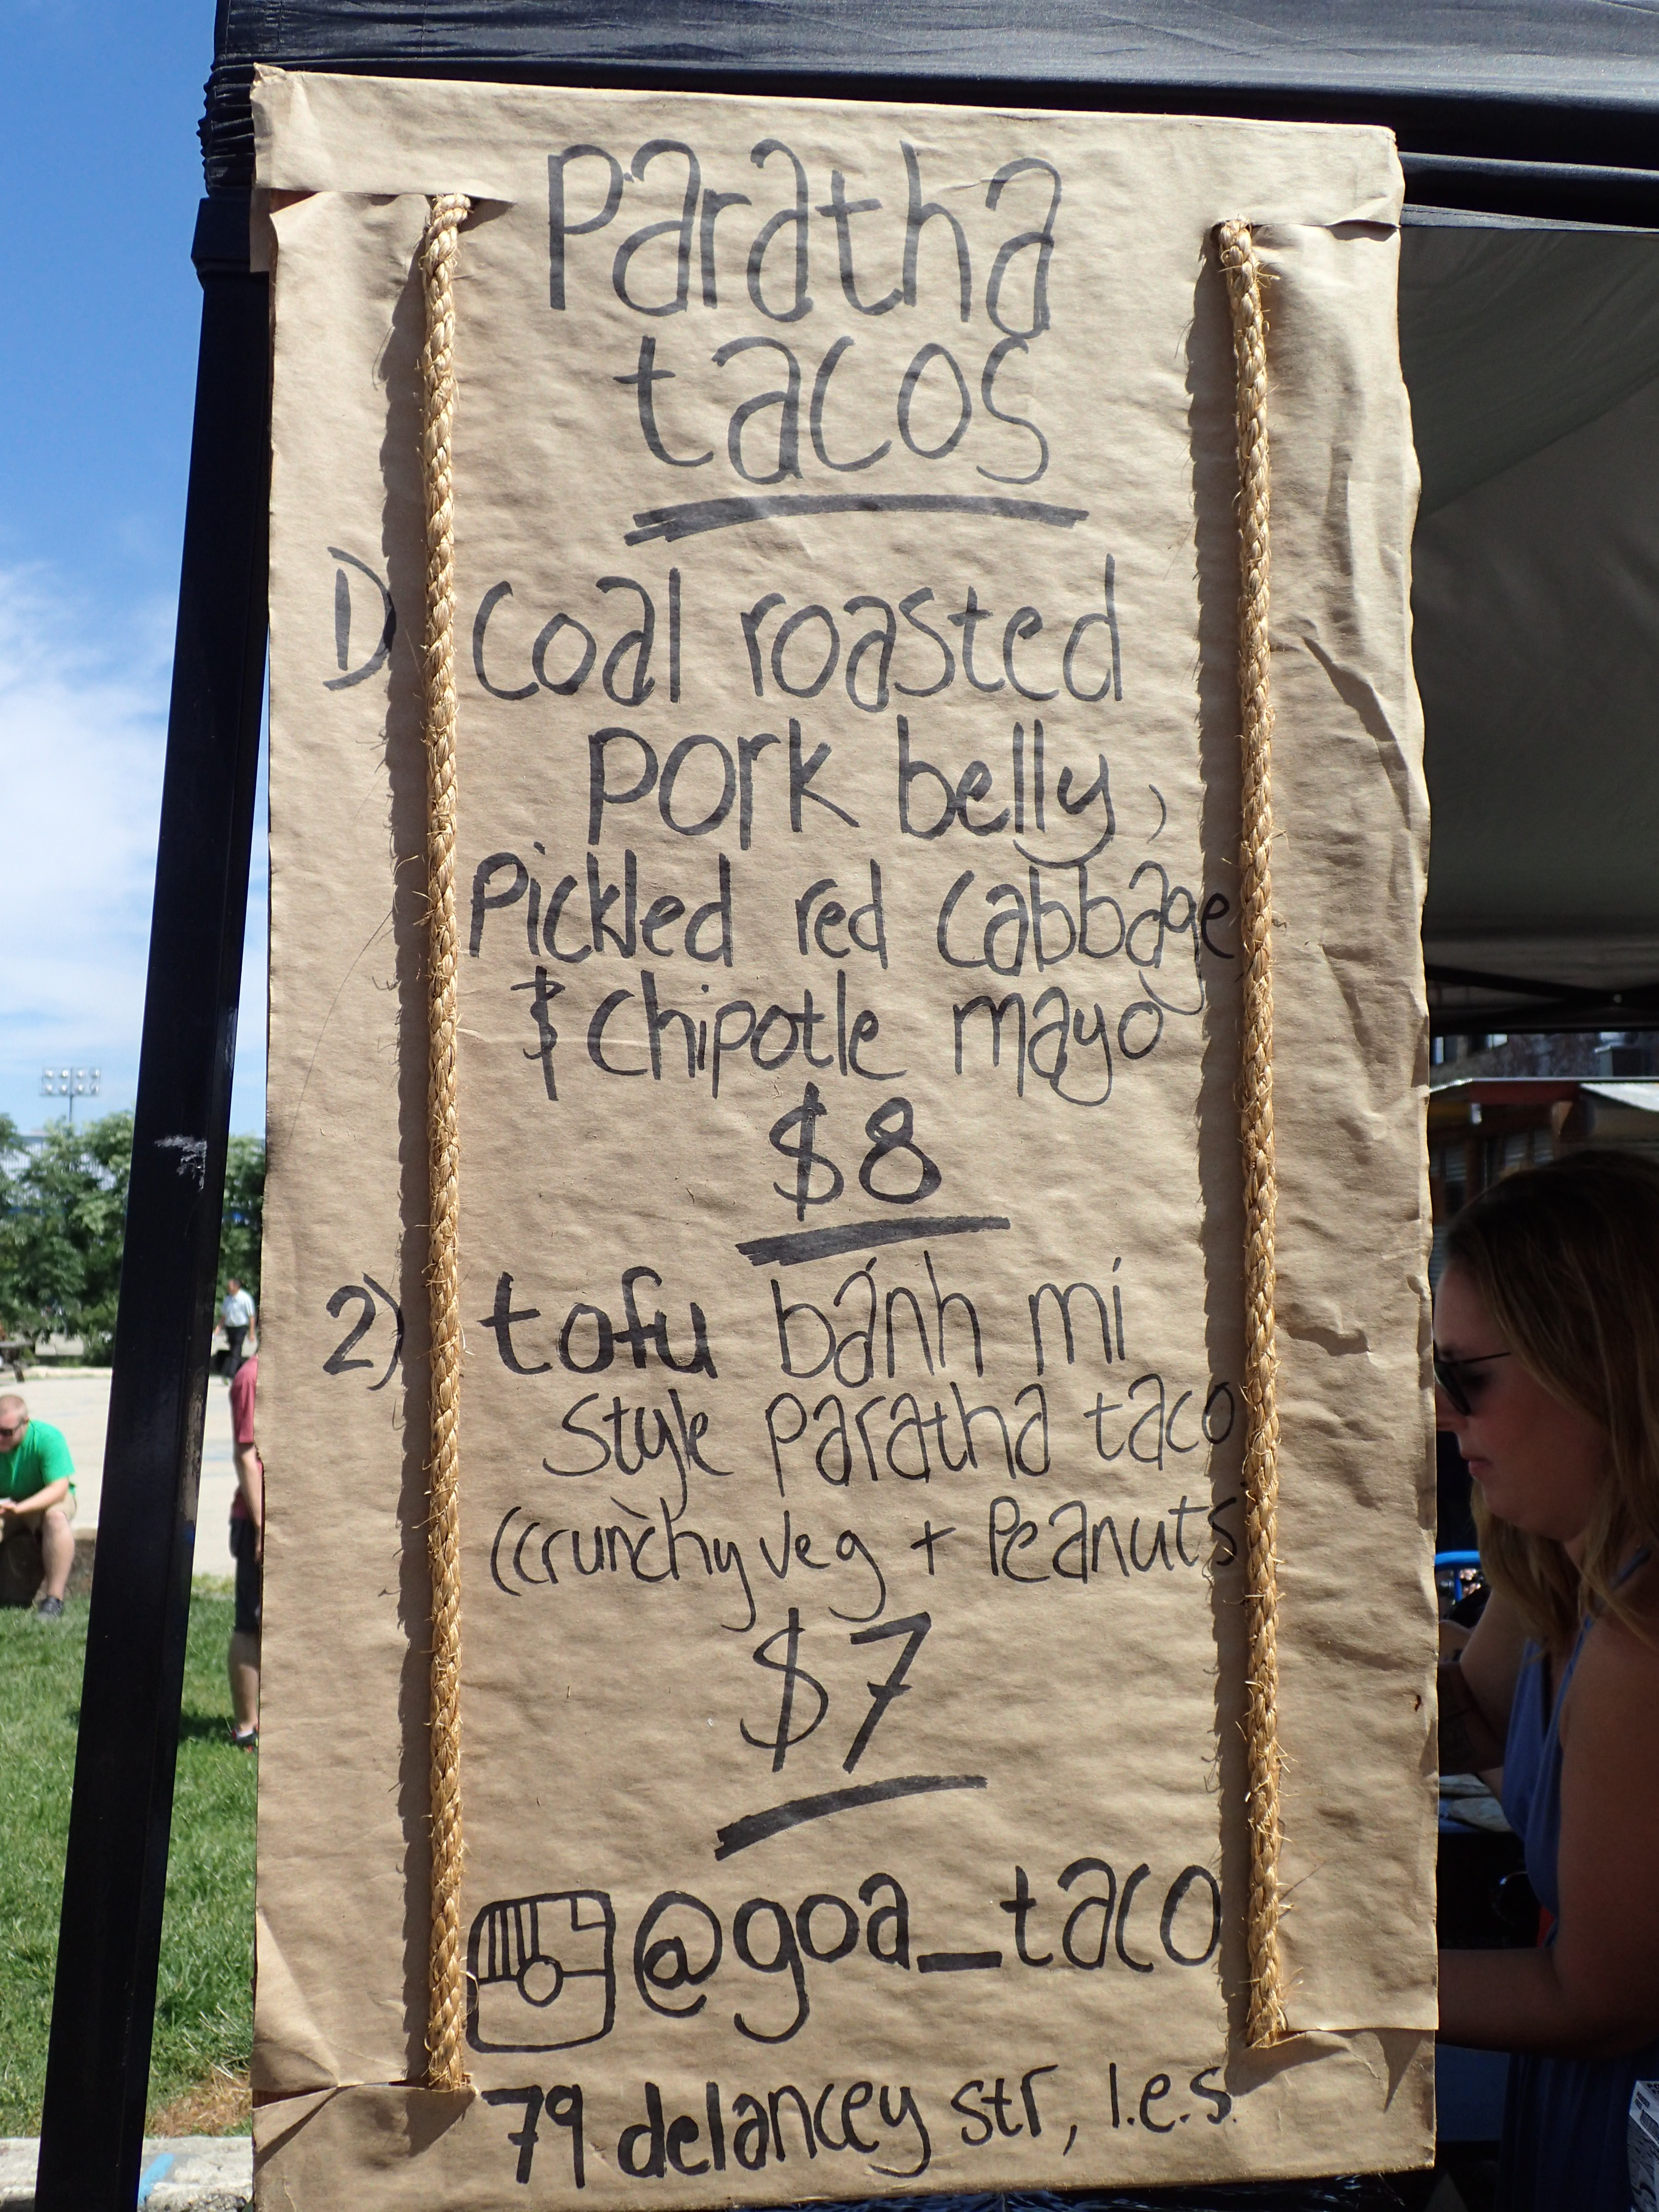 Paratha
tacos
1) Coal roasted
Pork belly,
Pickled red cabbage
& Chipotle mayo
$8
2) tofu bánh mí
Style Paratha taco
(crunchy veg + Peanuts
$7
@goa_taco
79 delancey str, l.e.s.